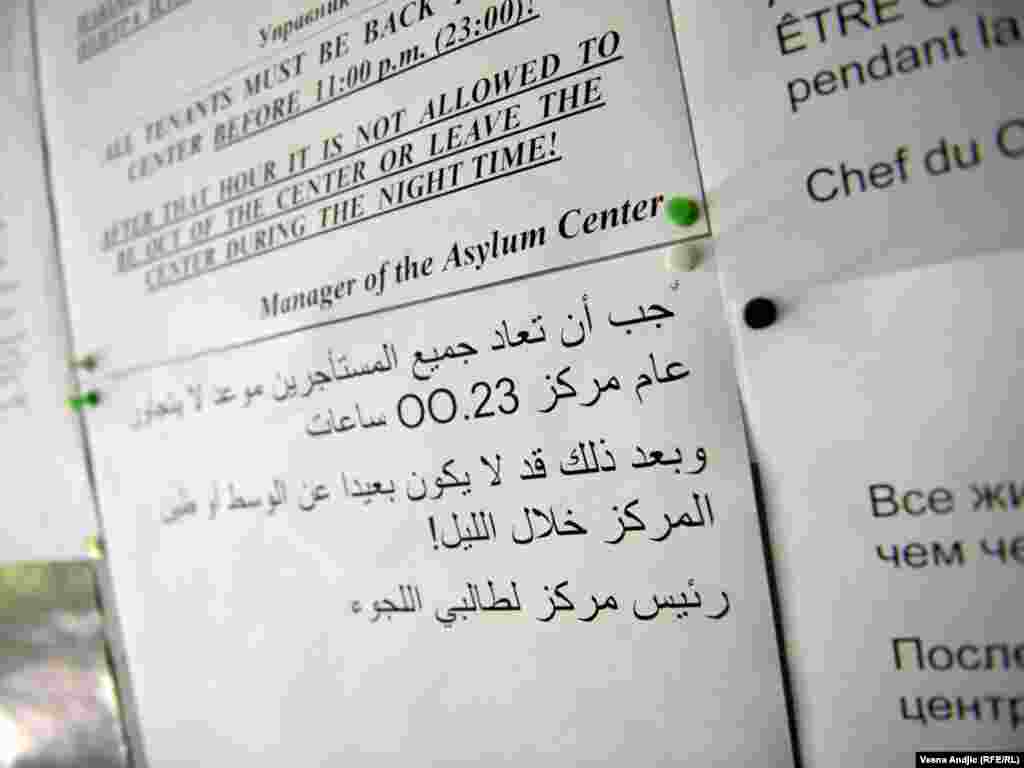 Управник
ALL TENANTS MUST BE BACK
CENTER BEFORE 11:00 p.m. (23:00)!
AFTER THAT HOUR IT IS NOT ALLOWED TO
BE OUT OF THE CENTER OR LEAVE THE
CENTER DURING THE NIGHT TIME!
Manager of the Asylum Center
جب أن تعاد جميع المستأجرين موعد لا يتجاوز
عام مركز 00.23 ساعات
وبعد ذلك قد لا يكون بعيدا عن الوسط أو
المركز خلال الليل!
رئيس مركز لطالبي اللجوء
ÊTRE
pendant la
Chef du C
Все жи
чем че
После
центр
Vesna Andjic (RFE/RL)